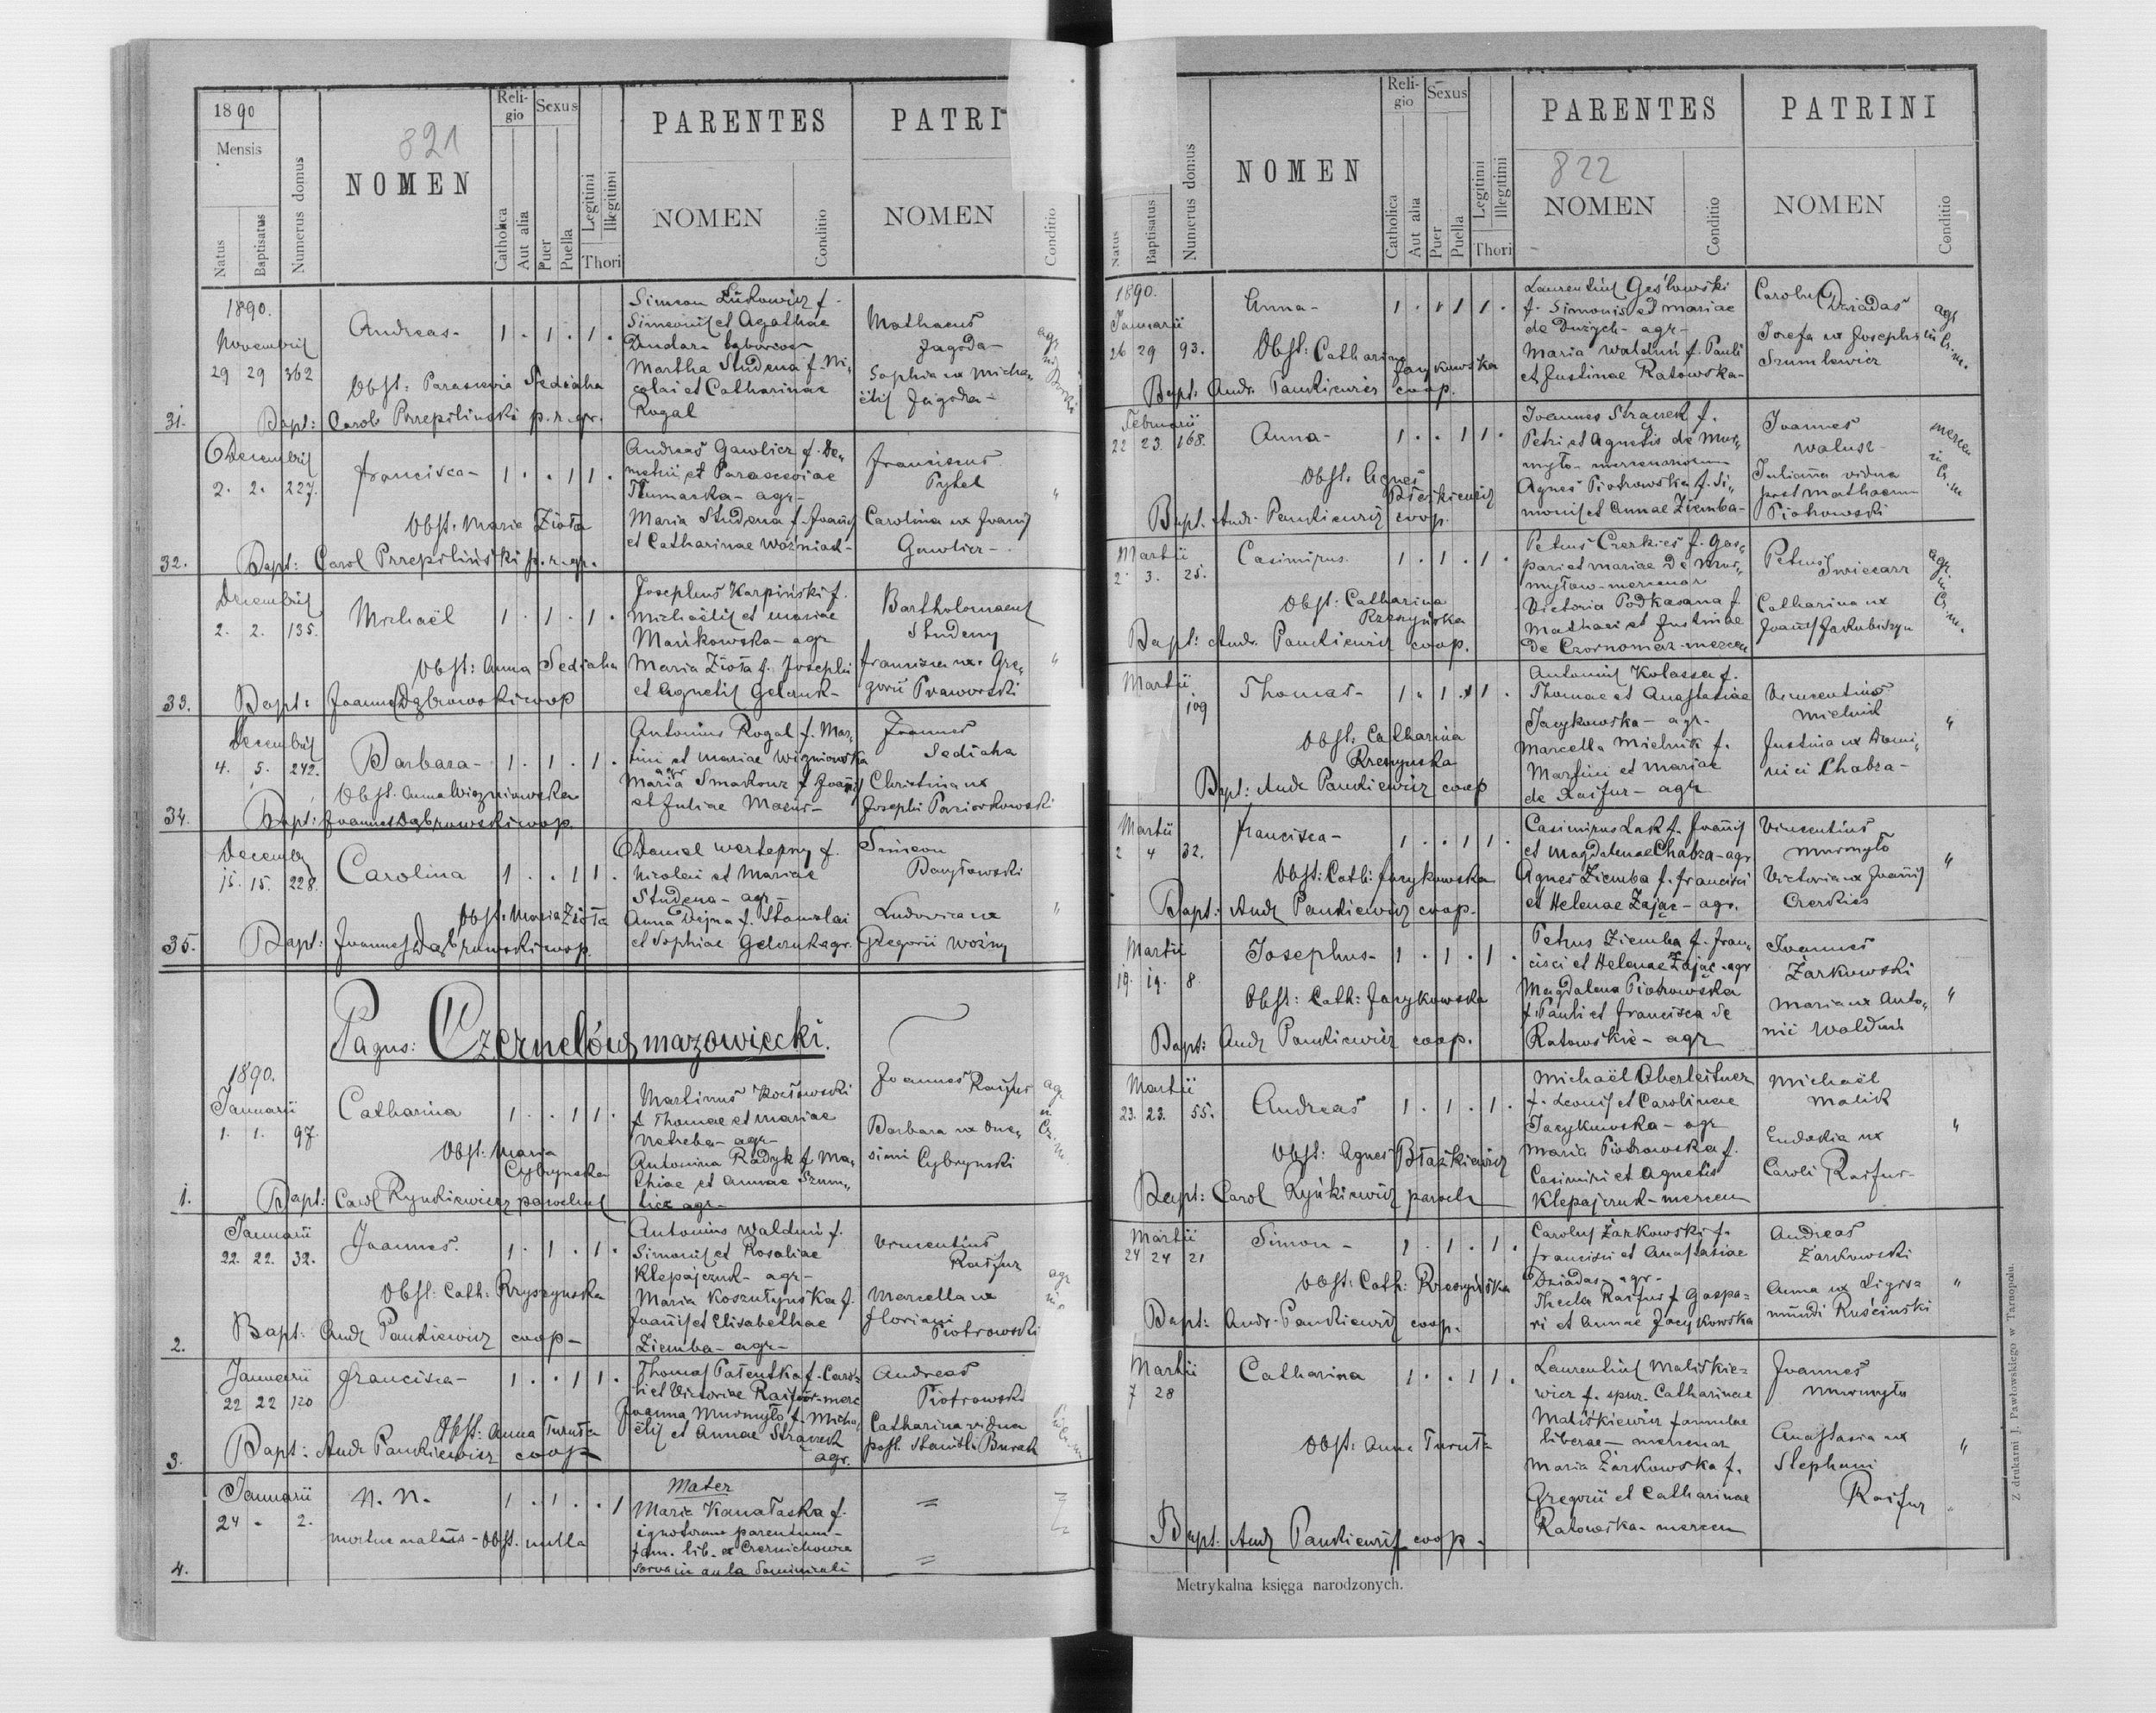 1890
Mensis
Natus
Baptisatus
Numerus domus
821
NOMEN
Religio
Catholica
Aut alia
Sexus
Puer
Puella
Legitimi
Illegitimi
Thori
PARENTES
NOMEN
Conditio
PATRI
NOMEN
Conditio
1890.
Novembris
29 29 362
Andreas- 1 . 1 . 1 .
Obst: Parascevia Sediaha
31. Bapt: Carol Przepiliński p. r. gr.
Simeon Lukowicz f.
Simeonis et Agathae
Martha Studena f. Ni-
colai et Catharinae
Rogal
Mathaeus
Jagoda-
Sophia ux Micha-
ëlis Jagoda-
Decembris
2. 2. 227.
Francisca- 1 . . 1 1 .
Obst. Maria Zioła
32. Bapt: Carol Przepiliński p. r. gr.
Andreas Gawlicz f. De-
metrii et Parasceviae
Tłumacka- agr-
Maria Studena f. Joañis
et Catharinae Woźniak-
Franciscus
Pytel
Carolina ux Joañis
Gawlicz-
Decembris
2. 2. 135.
Michaël 1 . 1 . 1 .
Obst: Anna Sediaha
33. Bapt: Joannes Dąbrowski coop
Josephus Karpiński f.
Michaëlis et Mariae
Mańkowska- agr
Maria Zioła f. Josephi
et Agnetis Gelczuk-
Bartholomaeus
Studeny
Francisca ux. Gre-
gorii Praworski
Decembris
4. 5. 242.
Barbara- 1 . 1 . 1 .
Obst. Anna Wiszniowska
34. Bapt: Joannes Dąbrowski coop.
Antonius Rogal f. Mar-
tini et Mariae Wiszniowska
agr
Maria Smakouz f. Joañis
et Juliae Mazur-
Joannes
Sediaha
Christina ux
Josephi Pasiorkowski
Decembr
15. 15. 228.
Carolina 1 . . 1 1 .
Obst. Maria Zioła
35. Bapt: Joannes Dąbrowski coop.
Daniel Wertepny f.
Nicolai et Mariae
Studena- agr-
Anna Dejna f. Stanislai
et Sophiae Gelczuk agr.
Simeon
Baryłowski
Ludovica ux
Gregorii Woźny
Pagus: Czernelów mazowiecki.
1890.
Januarii
1. 1. 97.
Catharina 1 . . 1 1 .
Obst: Maria
Cybrynska
1. Bapt: Carol Rynkiewicz parochus
Martinus Kozłowski
f. Thomae et Mariae
Netreba- agr-
Antonina Radyk f. Ma-
thiae et Annae Szum-
licz agr-
Joannes Rajfur
Barbara ux One-
simi Cybrynski
Januarii
22. 22. 32.
Joannes. 1 . 1 . 1 .
Obst: Cath: Krzyszynska
2. Bapt: Andr Pankiewicz coop-
Antonius Walduń f.
Simonis et Rosaliae
Klepajczuk- agr-
Maria Koszutyńska f.
Joañis et Elisabethae
Ziemba- agr-
Vincentius
Rajfur
Marcella ux
Floriani
Piotrowski
Januarii
22 22 120
Francisca- 1 . . 1 1 .
Obst: Anna Turuta
3. Bapt: Andr Pankiewicz coop-
Thomas Pałentka f. Caro-
li et Victoriae Rajfur- merc
Joanna Murmyło f. Micha-
ëlis et Annae Strączek
agr.
Andreas
Piotrowski
Catharina vidua
post Stanisl: Burak
Januarii
24 - 2.
N. N. 1 . 1 . . 1
mortuus natus- Obst. nulla
4.
Mater
Maria Kanałaska f.
ignotorum parentum-
fam. lib. ex Czernichowce
serva in aula dominicali
=
=
Natus
Baptisatus
Numerus domus
NOMEN
Religio
Catholica
Aut alia
Sexus
Puer
Puella
Legitimi
Illegitimi
Thori
PARENTES
822
NOMEN
Conditio
PATRINI
NOMEN
Conditio
1890.
Januarii
26 29 93.
Anna- 1 . . 1 1 .
Obst: Catharina
Jacykowska
Bapt: Andr. Pankiewicz coop.
Laurentius Gęsłowski
f. Simonis et Mariae
de Dużych- agr-
Maria Walduń f. Pauli
et Justinae Ratowska-
Carolus Dziadas
Josefa ux Josephi
Szumlewicz
agr.
in
Cz. m.
Februarii
22 23. 168.
Anna- 1 . . 1 1 .
Obst. Agnes
Błaśkiewicz
Bapt. Andr. Pankiewicz coop.
Joannes Strączek f.
Petri et Agnetis de Mur-
myło- mercenarius
Agnes Piotrowska f. Si-
monis et Annae Ziemba-
Joannes
Walusz-
Julianna vidua
post Mathaeum
Piotrowski
mercen
in
Cz. m
Martii
2. 3. 25.
Casimirus. 1 . 1 . 1 .
Obst: Catharina
Krzszyńska
Bapt: Andr. Pankiewicz coop.
Petrus Czerkies f. Gas-
pari et Mariae de Mur-
myłow- mercenar
Victoria Podkasana f.
Mathaei et Justinae
de Czornomaz- mercen
Petrus Zwieczarz
Catharina ux
Joañis Jakubiszyn
agr.
in
Cz. m.
Martii
109
Thomas- 1 . 1 . 1 .
Obst: Catharina
Krzszynska
Bapt: Andr Pankiewicz coop
Antonius Kolassa f.
Thomae et Anastasiae
Jacykowska- agr.
Marcella Mielnik f.
Martini et Mariae
de Rajfur- agr
Vincentius
Mielnik
Justina ux Domi-
nici Chabza-
"
Martii
2 4 32.
Francisca- 1 . . 1 1 .
Obst: Cath: Jacykowska
Bapt: Andr Pankiewicz coop.
Casimirus Lak f. Joañis
et Magdalenae Chabza- agr
Agnes Ziemba f. Francisci
et Helenae Zając- agr.
Vincentius
Murmyło
Victoria ux Joañis
Czerkies
"
Martii
19. 19. 8.
Josephus- 1 . 1 . 1 .
Obst: Cath: Jacykowska
Bapt: Andr Pankiewicz coop.
Petrus Ziemba f. Fran-
cisci et Helenae Zając- agr
Magdalena Piotrowska
f. Pauli et Francisca de
Ratowskie- agr
Joannes
Żarkowski
Maria ux Anto-
nii Walduń
"
Martii
23. 23. 55.
Andreas 1 . 1 . 1 .
Obst: Agnes Błaźkiewicz
Bapt: Carol Rynkiewicz paroch
Michaël Aberleitner
f. Leonis et Carolinae
Jacykowska- agr
Maria Piotrowska f.
Casimiri et Agnetis
Klepajczuk- mercen
Michaël
Malick
Eudokia ux
Caroli Rajfur-
"
Martii
24 24 21
Simon- 1 . 1 . 1 .
Obst: Cath: Krzszyńska
Bapt: Andr. Pankiewicz coop.
Carolus Żarkowski f.
Francisci et Anastasiae
Dziadas- agr-
Thecla Rajfur f. Gaspa-
ri et Annae Jacykowska
Andreas
Żarkowski
Anna ux Sigis-
mundi Ruściński
"
Martii
7 28
Catharina 1 . . 1 1 .
Obst: Anna Turuta
Bapt. Andr Pankiewicz coop.
Laurentius Maliśkie-
wicz f. spur. Catharinae
Maliśkiewicz famulae
liberae- mercenar
Maria Żarkowska f.
Gregorii et Catharinae
Ratowska- mercen
Joannes
Murmyło
Anastasia ux
Stephani
Rajfur
"
Metrykalna księga narodzonych.
Z drukarni J. Pawłowskiego w Tarnopolu.